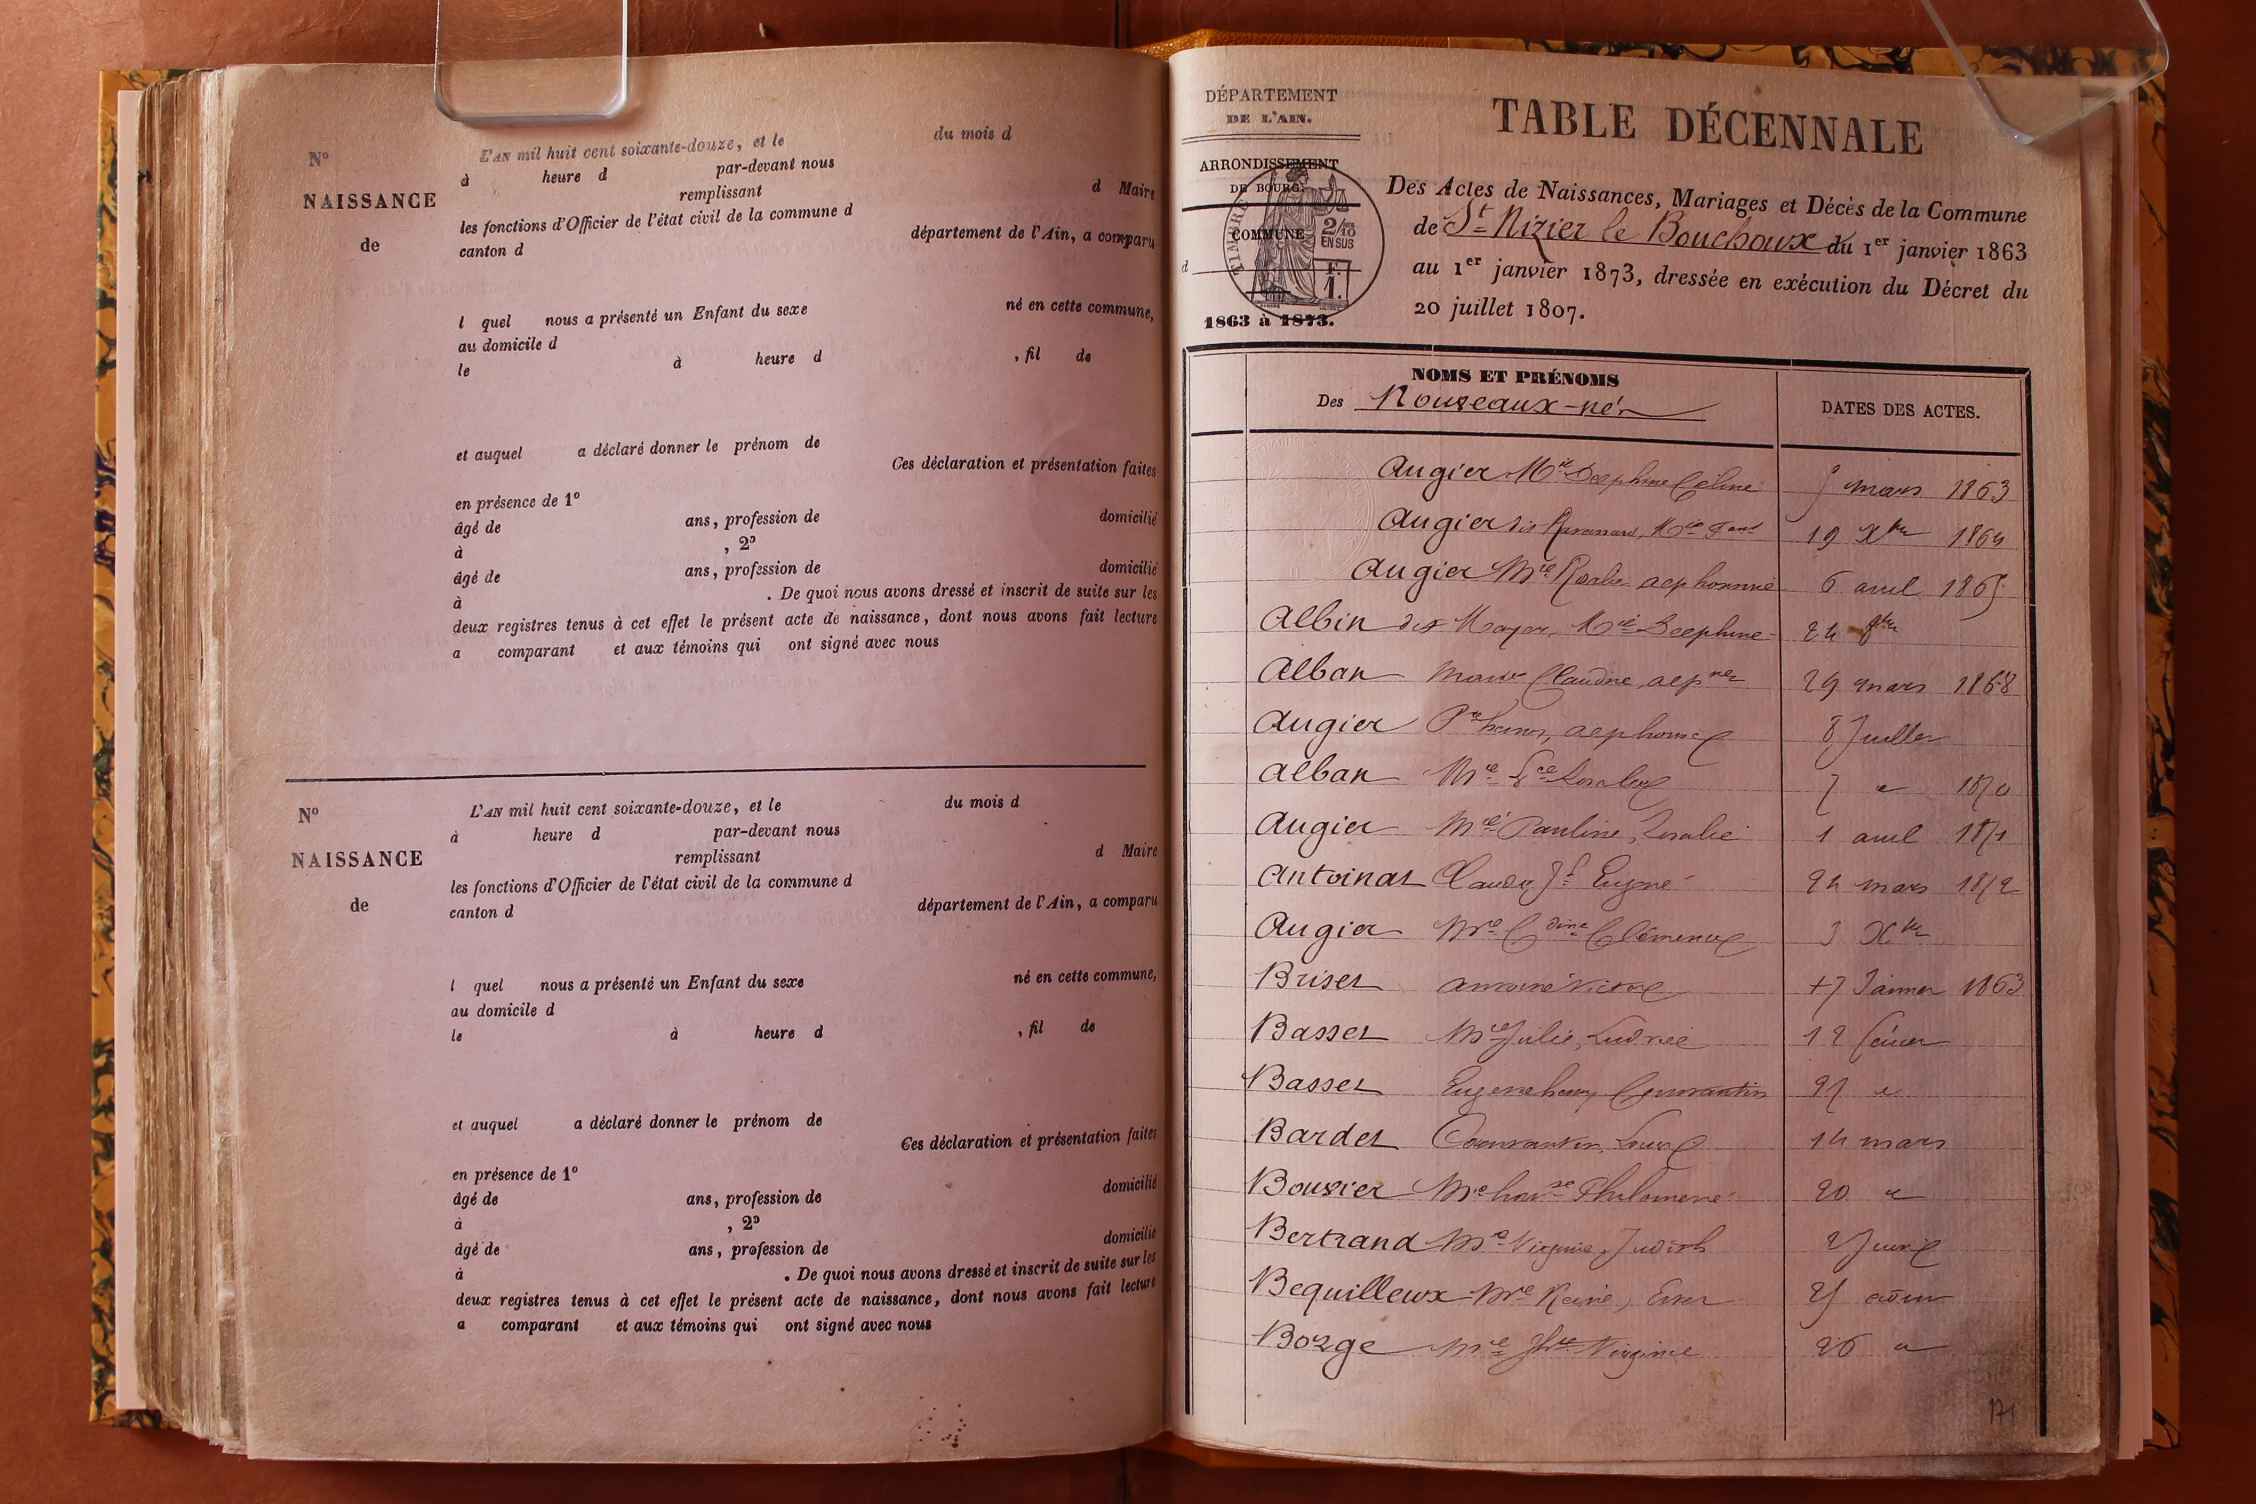 N°
NAISSANCE
de
L'AN mil huit cent soixante-douze, et le du mois d
à heure d par-devant nous
remplissant d Maire
les fonctions d'Officier de l'état civil de la commune d
canton d département de l'Ain, a comparu
l quel nous a présenté un Enfant du sexe né en cette commune,
au domicile d
le à heure d , fil de
et auquel a déclaré donner le prénom de
Ces déclaration et présentation faites
en présence de 1°
âgé de ans, profession de domicilié
à , 2°
âgé de ans, profession de domicilié
à . De quoi nous avons dressé et inscrit de suite sur les
deux registres tenus à cet effet le présent acte de naissance, dont nous avons fait lecture
a comparant et aux témoins qui ont signé avec nous
N°
NAISSANCE
de
L'AN mil huit cent soixante-douze, et le du mois d
à heure d par-devant nous
remplissant d Maire
les fonctions d'Officier de l'état civil de la commune d
canton d département de l'Ain, a comparu
l quel nous a présenté un Enfant du sexe né en cette commune,
au domicile d
le à heure d , fil de
et auquel a déclaré donner le prénom de
Ces déclaration et présentation faites
en présence de 1°
âgé de ans, profession de domicilié
à , 2°
âgé de ans, profession de domicilié
à . De quoi nous avons dressé et inscrit de suite sur les
deux registres tenus à cet effet le présent acte de naissance, dont nous avons fait lecture
a comparant et aux témoins qui ont signé avec nous
DÉPARTEMENT
DE L'AIN.
ARRONDISSEMENT
DE BOURG.
COMMUNE
d
TIMBRE
2/10
EN SUS
F.
1.
1863 à 1873.
TABLE DÉCENNALE
Des Actes de Naissances, Mariages et Décès de la Commune
de St Nizier le Bouchoux du 1er janvier 1863
au 1er janvier 1873, dressée en exécution du Décret du
20 juillet 1807.
NOMS ET PRÉNOMS
Des Nouveaux-nés
DATES DES ACTES.
Augier Mie Josephine Céline mars 1863
Augier dit Mie 19 Xbre 1864
Augier Mie Rosalie 6 avril 1865
Albin dit Mie Josephine 24
Alban Marie Claudine 29 mars 1868
Augier 8 Juillet
Alban Mie 7 " 1870
Augier Mie Pauline Rosalie 1 avril 1871
Antoinat Claude Jh Eugène 24 mars 1872
Augier Mie Cdine Clémence 3 Xbre
Briset Antoine Victor 17 Janvier 1863
Basset Mie Julie 12 février
Basset Eugène Constantin 27 "
Bardet Constantin 14 mars
Bouvier Mie Philomène 20 "
Bertrand Mie Virginie Judith 2 Juin
Bequilleux Mie Reine 25 août
Borge Mie Virginie 26 "
171